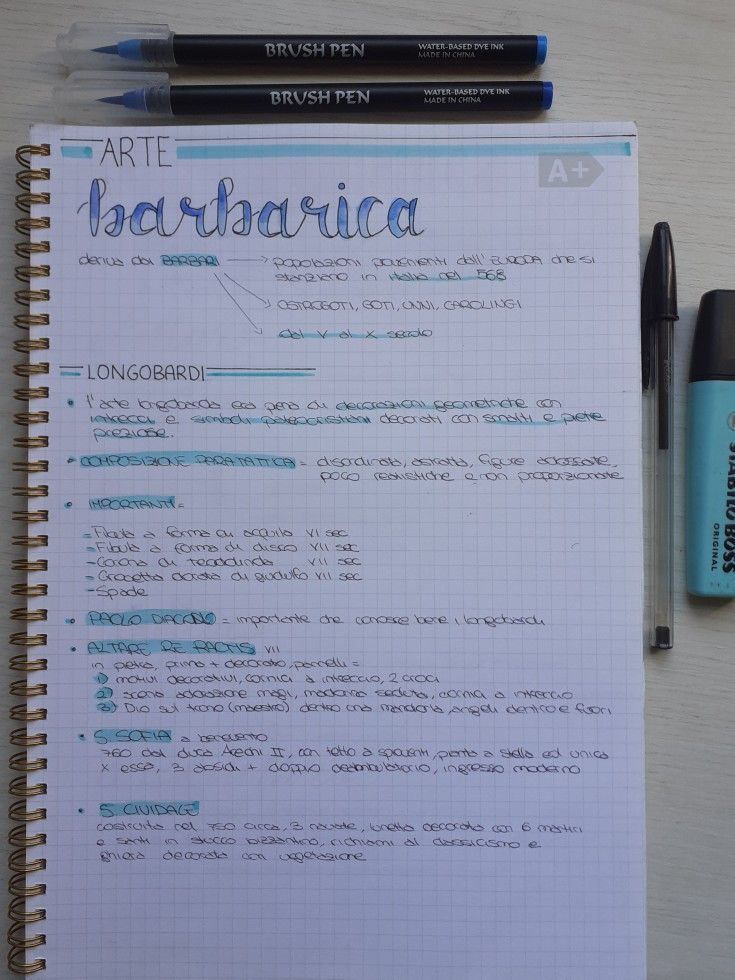 BRUSH PEN WATER-BASED DYE INK
MADE IN CHINA
BRUSH PEN WATER-BASED DYE INK
MADE IN CHINA
ARTE
A+
barbarica
deriva dai BARBARI → popolazioni provenienti dall'EUROPA che si
stanziano in Italia nel 568
OSTROGOTI, GOTI, UNNI, CAROLINGI
dal V al X secolo
LONGOBARDI
• l'arte longobarda era piena di decorazioni geometriche con
intrecci e simboli paleocristiani decorati con smalti e pietre
preziose.
• COMPOSIZIONE PARATATTICA = disordinata, astratta, figure accostate,
poco realistiche e non proporzionate
• IMPORTANTI =
- Fibula a forma di aquila VI sec
- Fibula a forma di disco VII sec
- Corona di teodolinda VII sec
- Crocetta dorata di VII sec
- Spade
• PAOLO DIACONO = importante che conosce bene i longobardi
• ALTARE RE RACHIS VII
in pietra, primo + decorato, pannelli =
1) motivi decorativi, cornici a intreccio, 2 croci
2) scena adorazione magi, madonna seduta, cornici a intreccio
3) Dio sul trono (maestro) dentro una mandorla, angeli dentro e fuori
• S. SOFIA a benevento
760 dal duca Arechi II, con tetto a spioventi, pianta a stella ed unica
x essa, 3 absidi + doppio deambulatorio, ingresso moderno
• S. CIVIDALE
costruita nel 750 circa, 3 navate, lunetta decorata con 6 martiri
e santi in stucco bizantino, richiami al classicismo e
ghiera decorata con vegetazione
STABILO BOSS
ORIGINAL